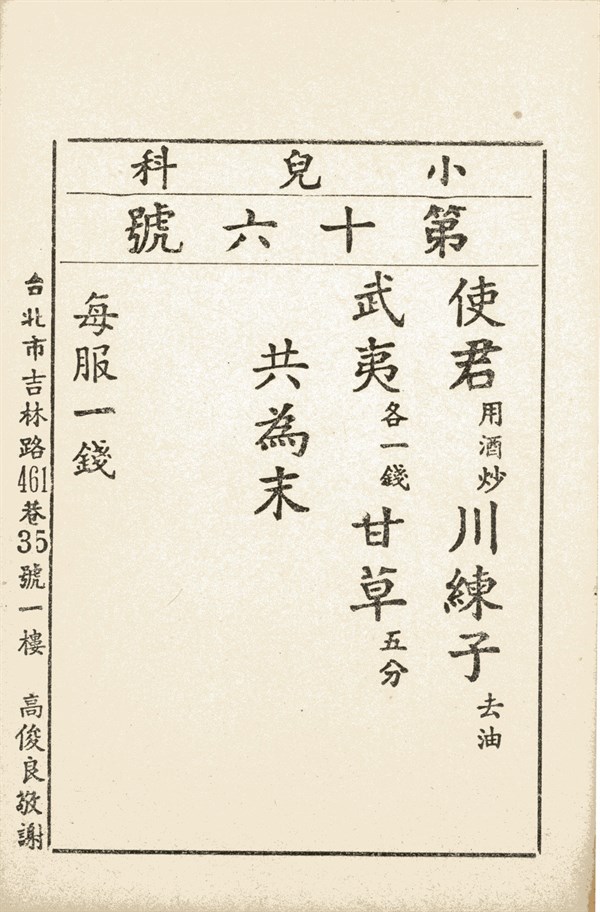 小兒科
第十六號
使君用酒炒川練子去油
武夷各一錢甘草五分
共為末
每服一錢
台北市吉林路461巷35號一樓 高俊良敬謝